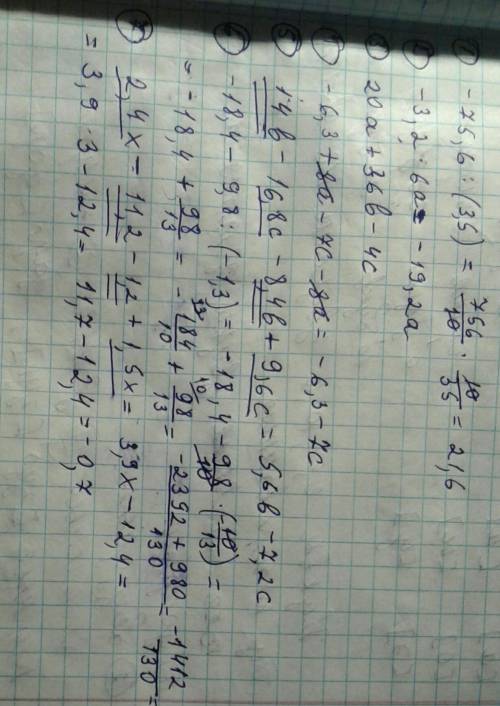 ① -75,6 : (35) = 756/10 · 10/35 = 21,6
② -3,2 · 6a = -19,2a
③ 20a + 36b - 4c
④ -6,3 + 8a - 7c - 8a = -6,3 - 7c
⑤ 14b - 16,8c - 8,4b + 9,6c = 5,6b - 7,2c
⑥ -18,4 - 9,8 : (-1,3) = -18,4 - 98/10 · (-10/13) =
= -18,4 + 98/13 = -184/10 + 98/13 = -2392 + 980/130 = -1412/130 =
⑦ 2,4x - 11,2 - 1,2 + 1,5x = 3,9x - 12,4 =
= 3,9 · 3 - 12,4 = 11,7 - 12,4 = -0,7